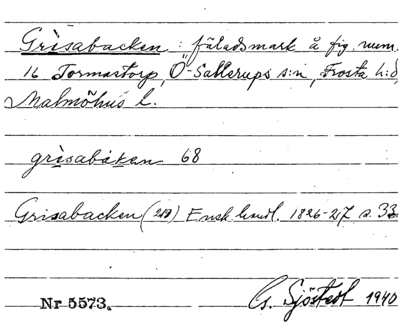 Grisabacken : fäladsmark å fig. num.
16 Tormastorp, Ö-Sallerups s:n, Frosta h:d,
Malmöhus l.
grisabakan 68
Grisabacken (219) Ensk. handl. 1826-27 s. 33.
Nr 5573. G. Sjöstedt 1940